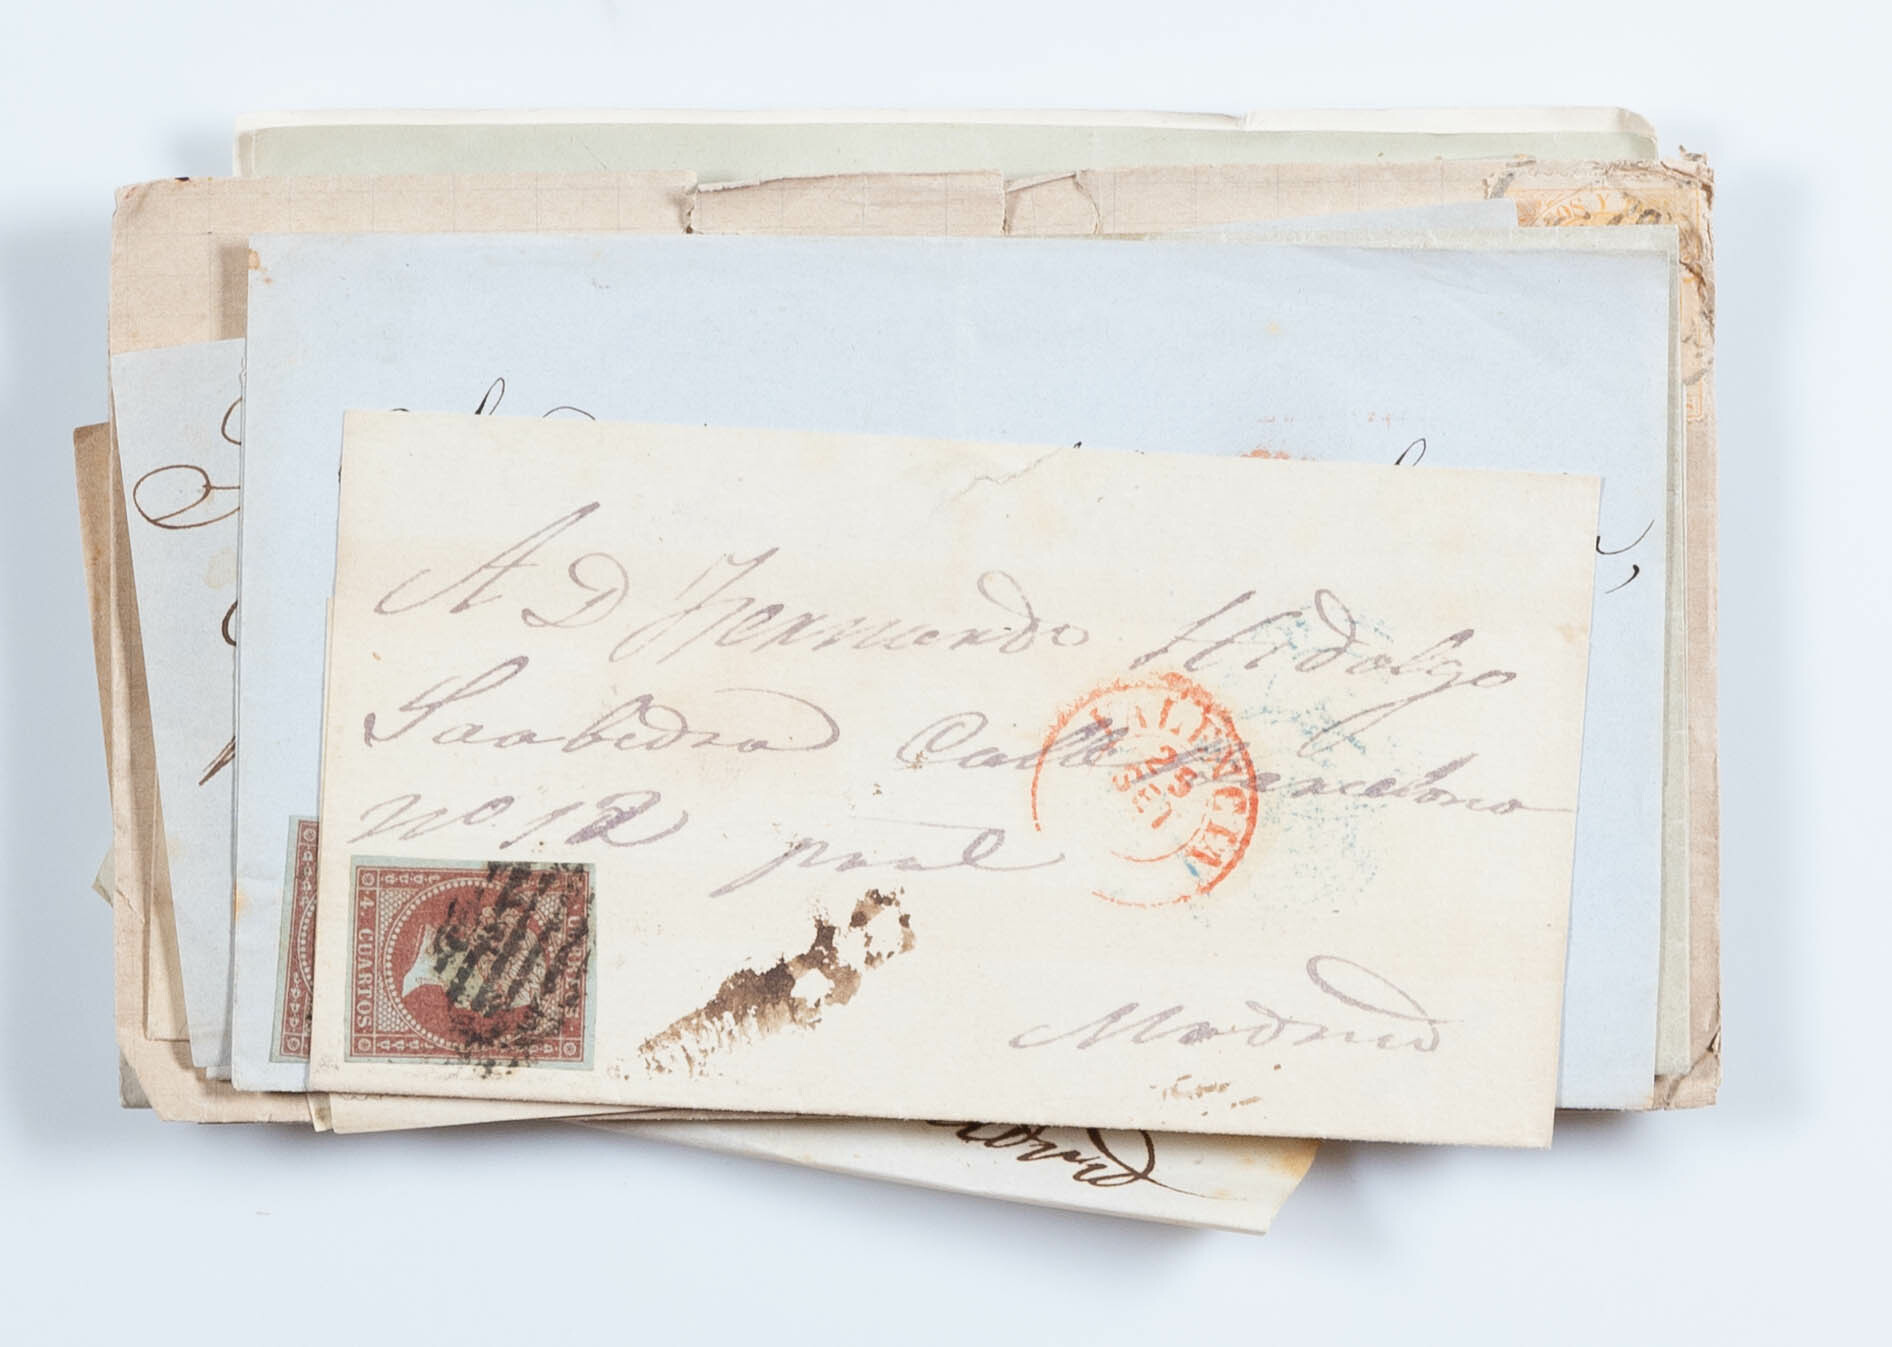 A D Fernando Hidalgo
Saabedra Calle Barcelona
No. 12 pral
Madrid
VALENCIA
25
SET
4 CUARTOS